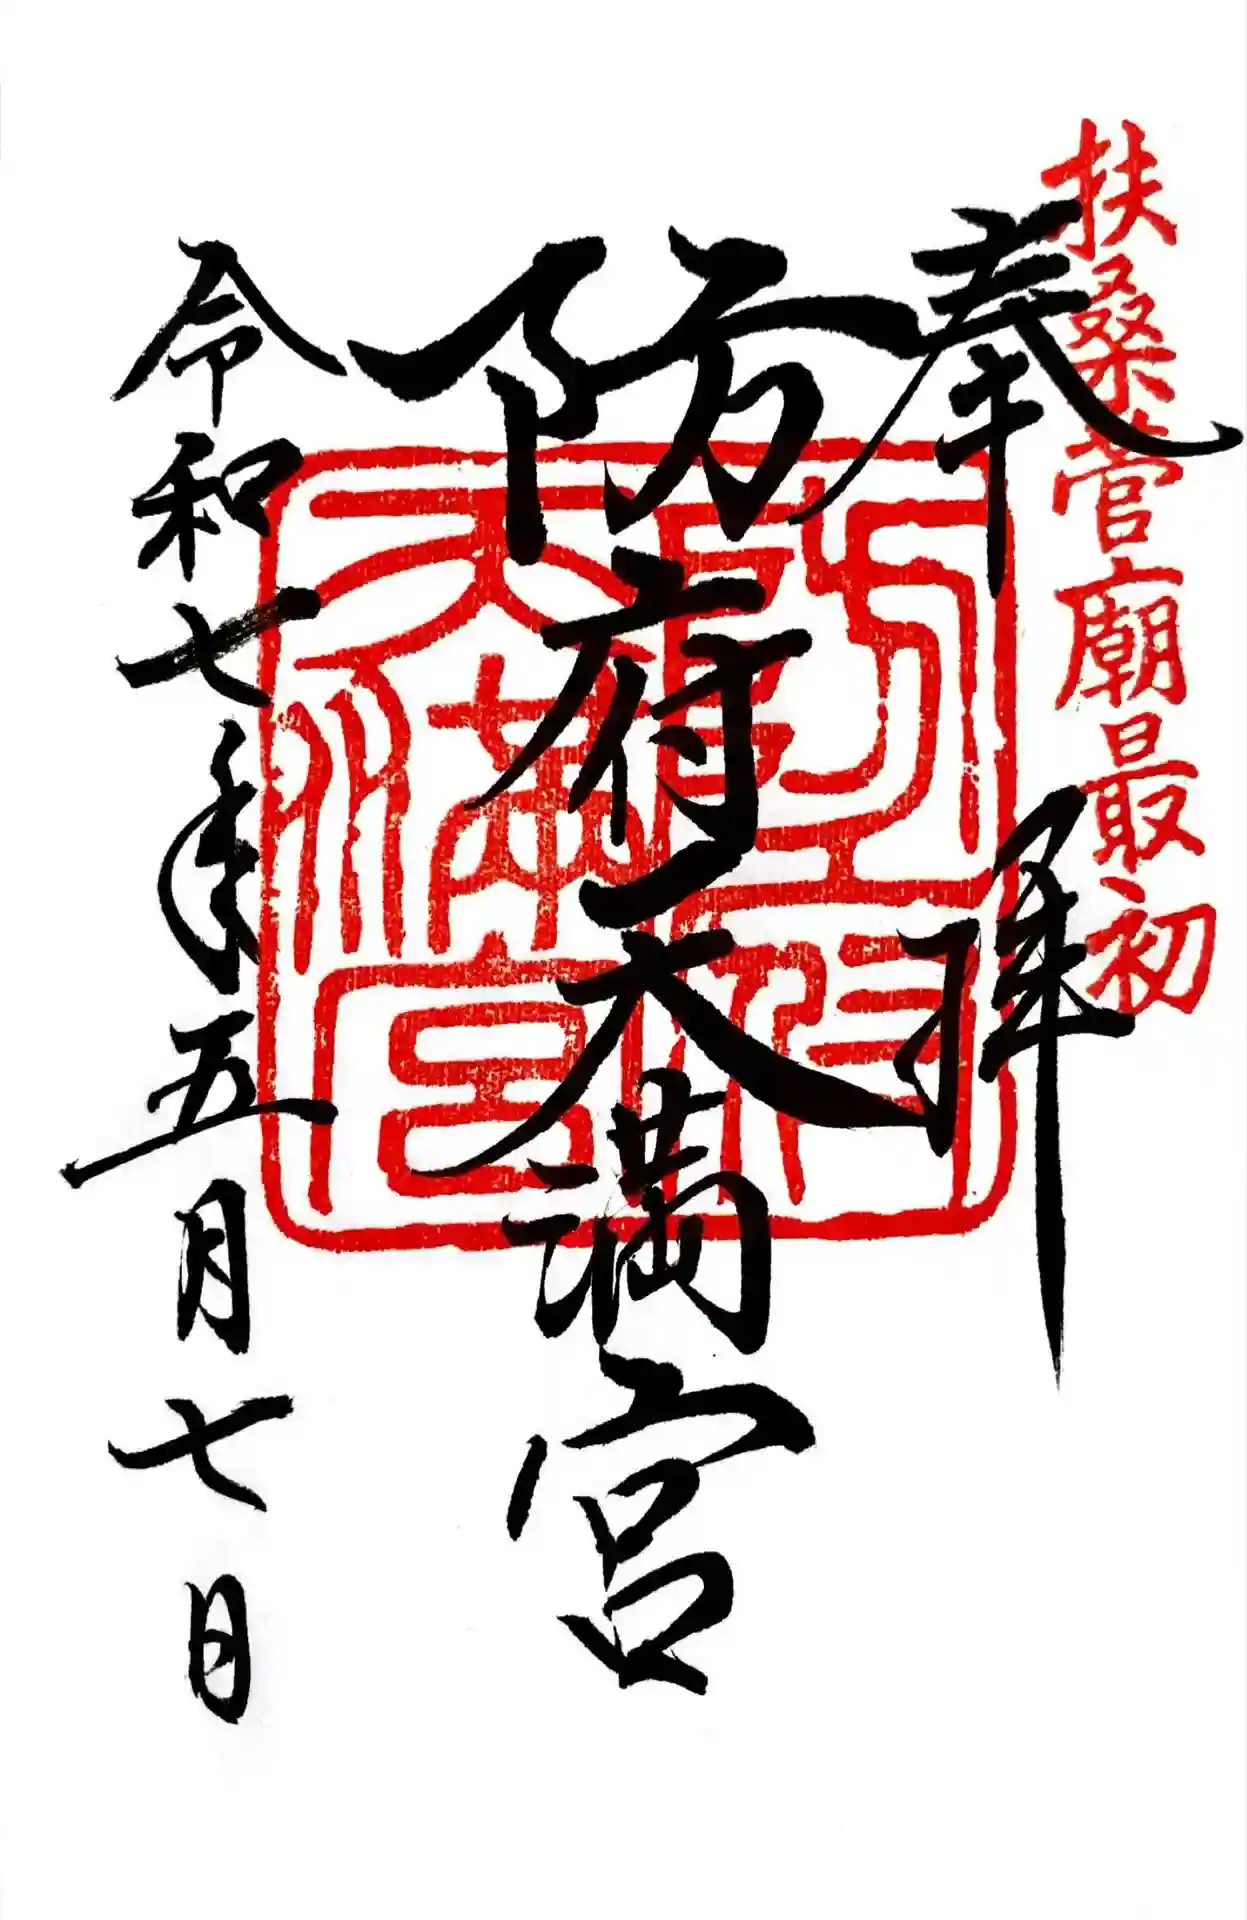 扶桑菅廟最初
奉拝
防府天満宮
令和七年五月七日